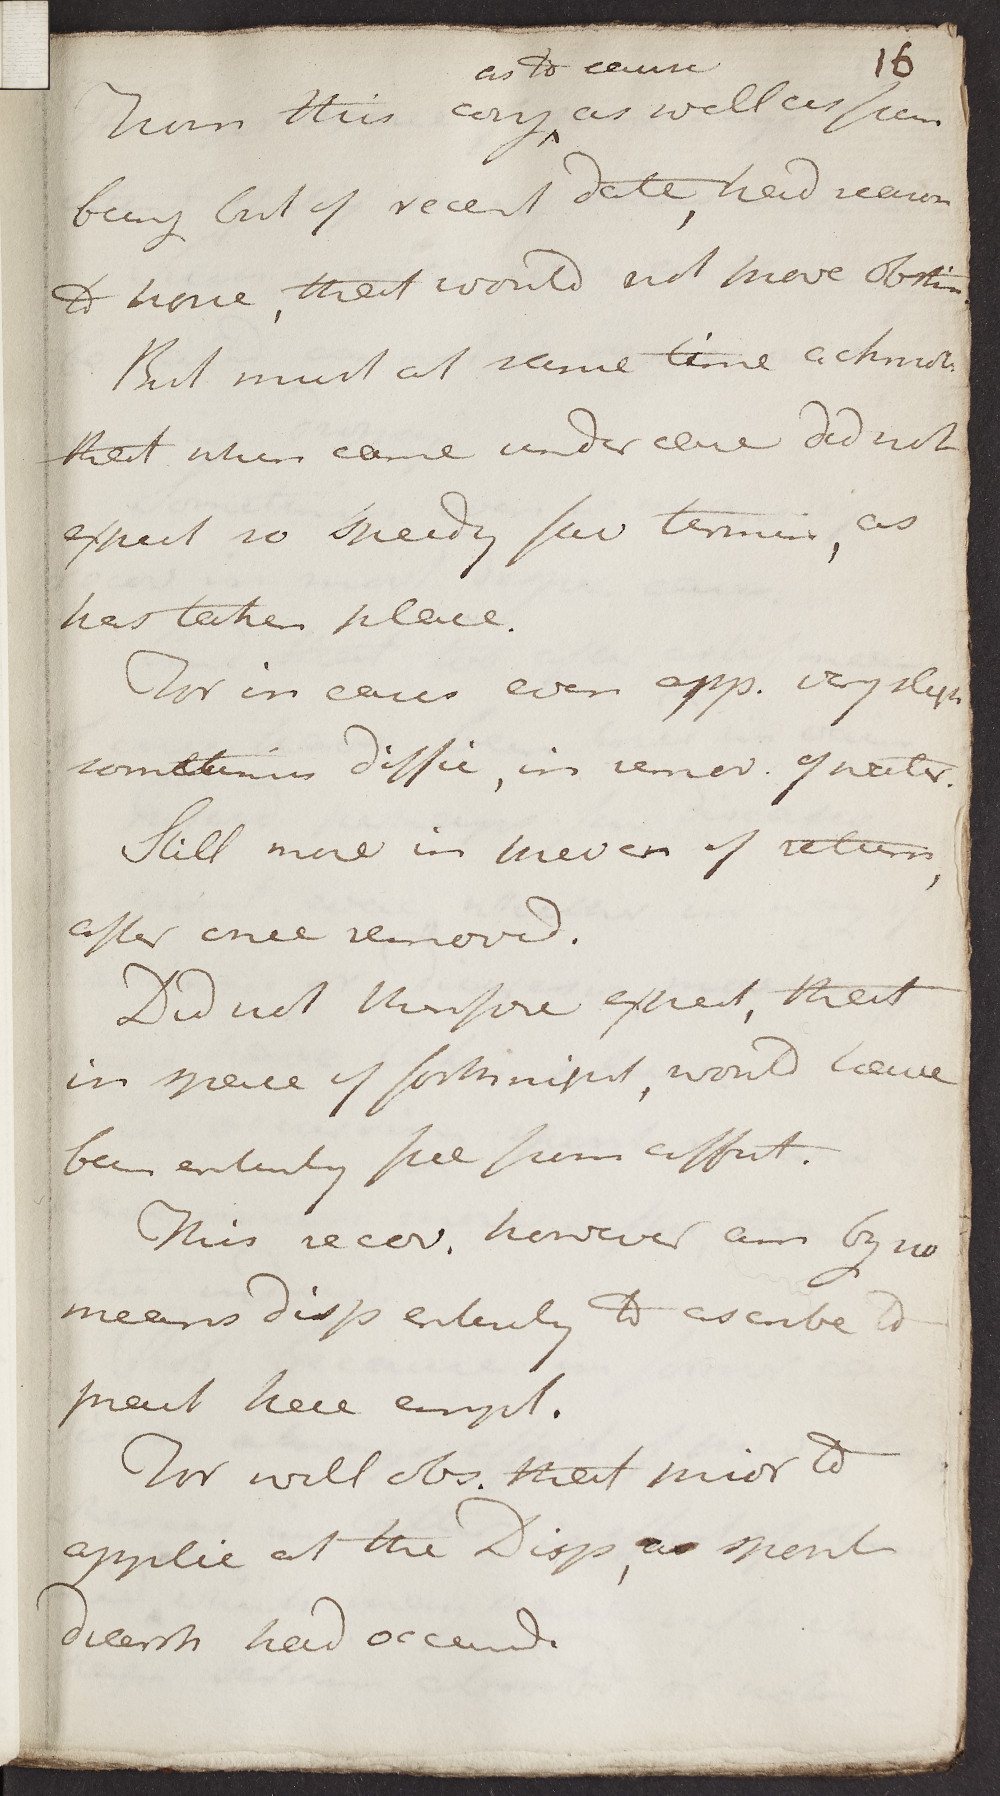 16
as to cause
From this conj, as well as from
being but of recent date, had reason
to hope, that would not prove obstin.
But must at same time acknow.
that when came under care did not
expect so speedy fav termin, as
has taken place.
For in cases even app. very slight
sometimes diffic, in remov. of water.
Still more in preven of return,
after once removed.
Did not therefore expect, that
in space of fortnight, would have
been entirely free from affect.
This recov. however am by no
means disp entirely to ascribe to
pract here empl.
For will obs. that prior to
applic at the Disp, a spont
diarrh had occurrd.